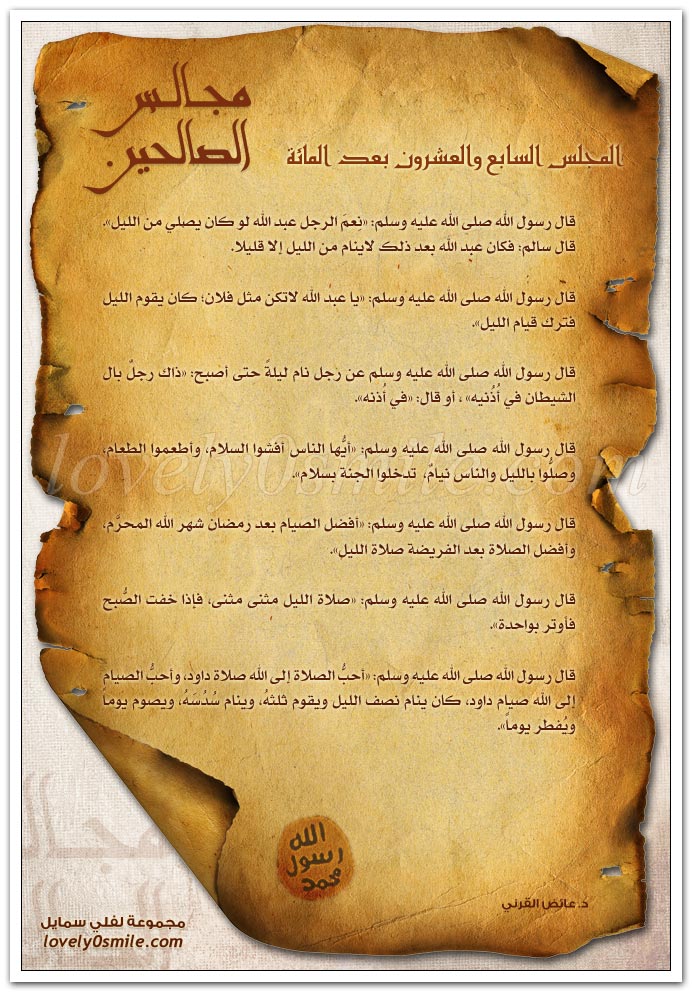 مجالس
الصالحين
المجلس السابع والعشرون بعد المائة
قال رسول الله صلى الله عليه وسلم: «نعمَ الرجل عبد الله لو كان يصلي من الليل».
قال سالم: فكان عبد الله بعد ذلك لاينام من الليل إلا قليلا.
قال رسول الله صلى الله عليه وسلم: «يا عبد الله لاتكن مثل فلان؛ كان يقوم الليل
فترك قيام الليل».
قال رسول الله صلى الله عليه وسلم عن رجل نام ليلةً حتى أصبح: «ذاك رجلٌ بال
الشيطان في أُذُنيه» ، أو قال: «في أُذنه».
قال رسول الله صلى الله عليه وسلم: «أيُّها الناس أفشوا السلام، وأطعموا الطعام،
وصلُّوا بالليل والناس نيامٌ، تدخلوا الجنة بسلام».
قال رسول الله صلى الله عليه وسلم: «أفضل الصيام بعد رمضان شهر الله المحرَّم،
وأفضل الصلاة بعد الفريضة صلاة الليل».
قال رسول الله صلى الله عليه وسلم: «صلاة الليل مثنى مثنى، فإذا خفت الصُّبح
فأوتر بواحدة».
قال رسول الله صلى الله عليه وسلم: «أحبُّ الصلاة إلى الله صلاة داود، وأحبُّ الصيام
إلى الله صيام داود، كان ينام نصف الليل ويقوم ثلثهُ، وينام سُدُسَهُ، ويصوم يوماً
ويُفطر يوماً».
lovely0smile.com
الله
رسول
محمد
د.عائض القرني
مجموعة لفلي سمايل
lovely0smile.com